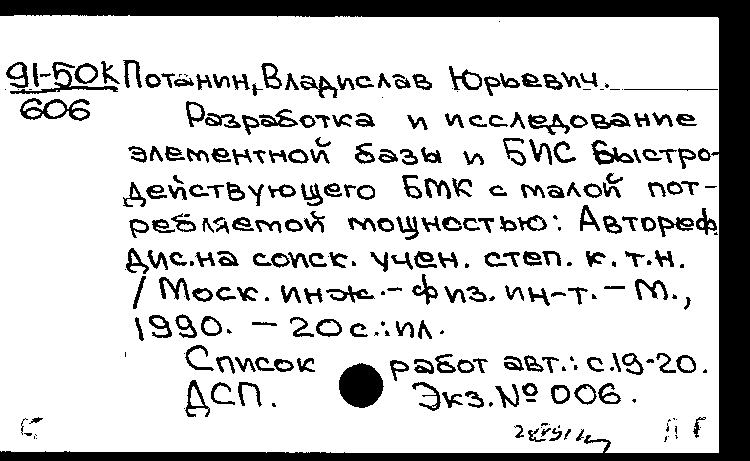 91-50К Потанин, Владислав Юрьевич.
606 Разработка и исследование
элементной базы и БИС быстро-
действующего БМК с малой пот-
ребляемой мощностью: Автореф
дис. на соиск. учен. степ. к. т. н.
/ Моск. инж.-физ. ин-т. – М.,
1990. – 20 с.: ил.
Список работ авт.: с. 19-20.
ДСП. Экз. № 006.